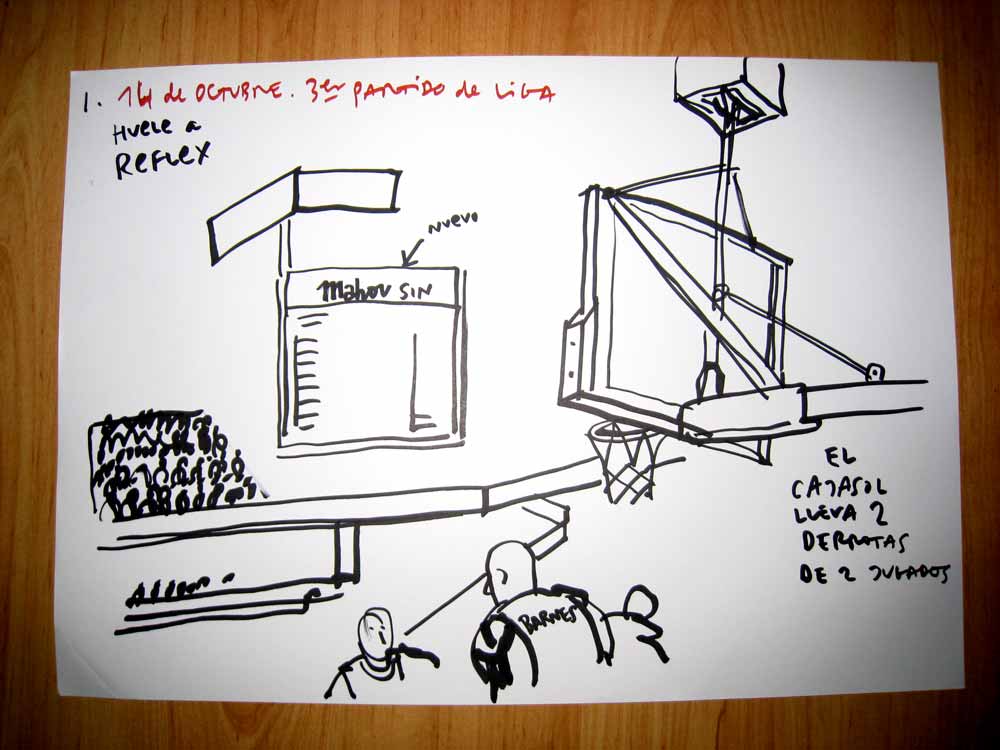 1. 14 de OCTUBRE. 3er PARTIDO de LIGA
HUELE a
REFLEX
NUEVO
Mahou SIN
EL
CAJASOL
LLEVA 2
DERROTAS
DE 2 JUGADOS
BARNES